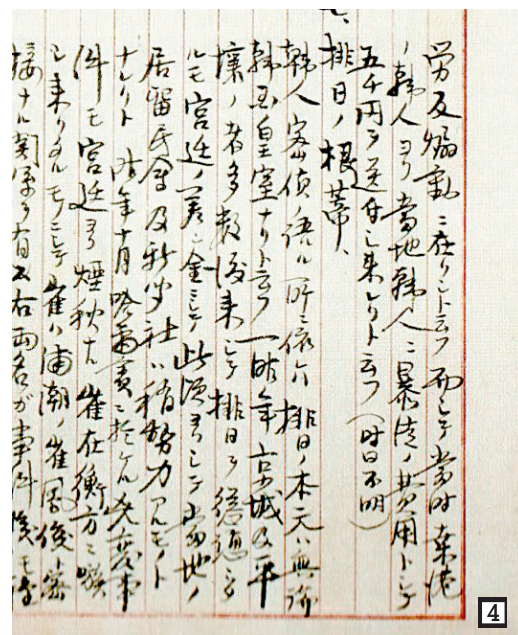 労反煽動ニ在リシト云フ而シテ当時桑港
ノ韓人ヨリ当地韓人ニ暴徒ノ費用トシテ
五千円ヲ送付シ来レリト云フ(時日不明)
排日ノ根蔕、
韓人密偵ノ語ル所ニ依レハ排日ノ本元ハ無論
韓国皇室ナリト云フ一昨年京城及平
壌ノ者多数渡来シテ排日ヲ
ルモ宮廷ノ差金ニシテ此頃ヨリシテ当地ノ
居留民会及新聞社ハ稍勢力アルモノト
ナレリト昨年十月哈爾賓ニ於ケル兇変事
件モ宮廷ヨリ煙秋ナル崔在衡方ニ
シ来リタルモノニシテ崔ハ浦潮ノ崔鳳俊ト密
接ナル関係ヲ有ス右両名ガ事件後モ
4